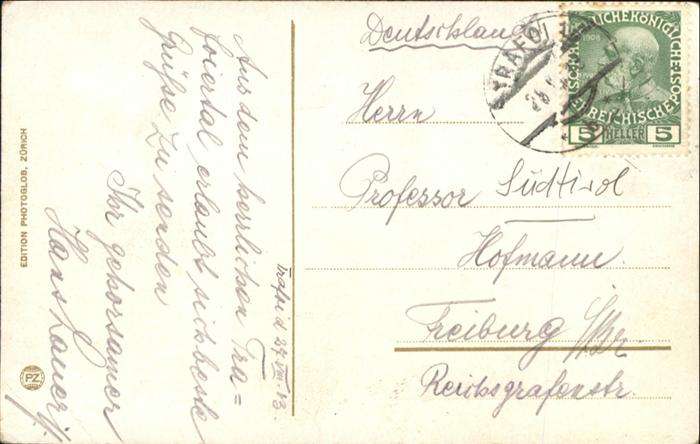 Aus dem herrlichen Tra=
foiertal erlaubt sich beste
Grüße zu senden
Ihr gehorsamer
Hans
Trafoi d. 27 VIII 13.
EDITION PHOTOGLOB, ZÜRICH
PZ
Deutschland
TRAFOI
KAISERLICHEKÖNIGLICHE
ÖSTERREICHISCHEPOST
1908
5 HELLER 5
Herrn
Professor
Südtirol
Hofmann.
Freiburg i/Br
Reichsgrafenstr.